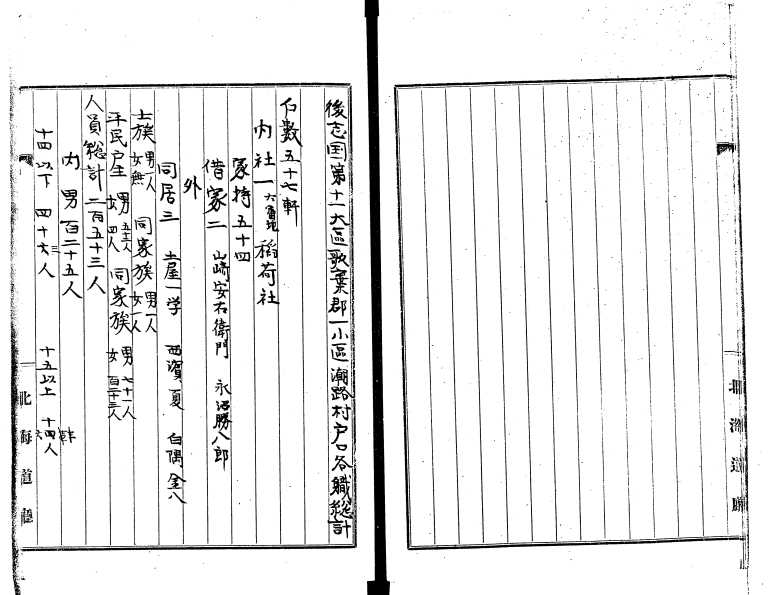 後志国第十一大區歌棄郡一小區潮路村戸口各職総計
戸数五十七軒
内社一 稲荷社
家持五十四
借家二 山崎安右衛門 永沼勝八郎
外
同居三 土屋一学 西濱夏 白隅金八
士族 男一人 女無 同家族 男一人 女一人
平民戸主 男五十二人 女四人 同家族 男七十一人 女百二十三人
人員総計二百五十三人
内 男百二十五人
十四以下 四十六人 十五以上 十四人
北海道廳
北海道廳